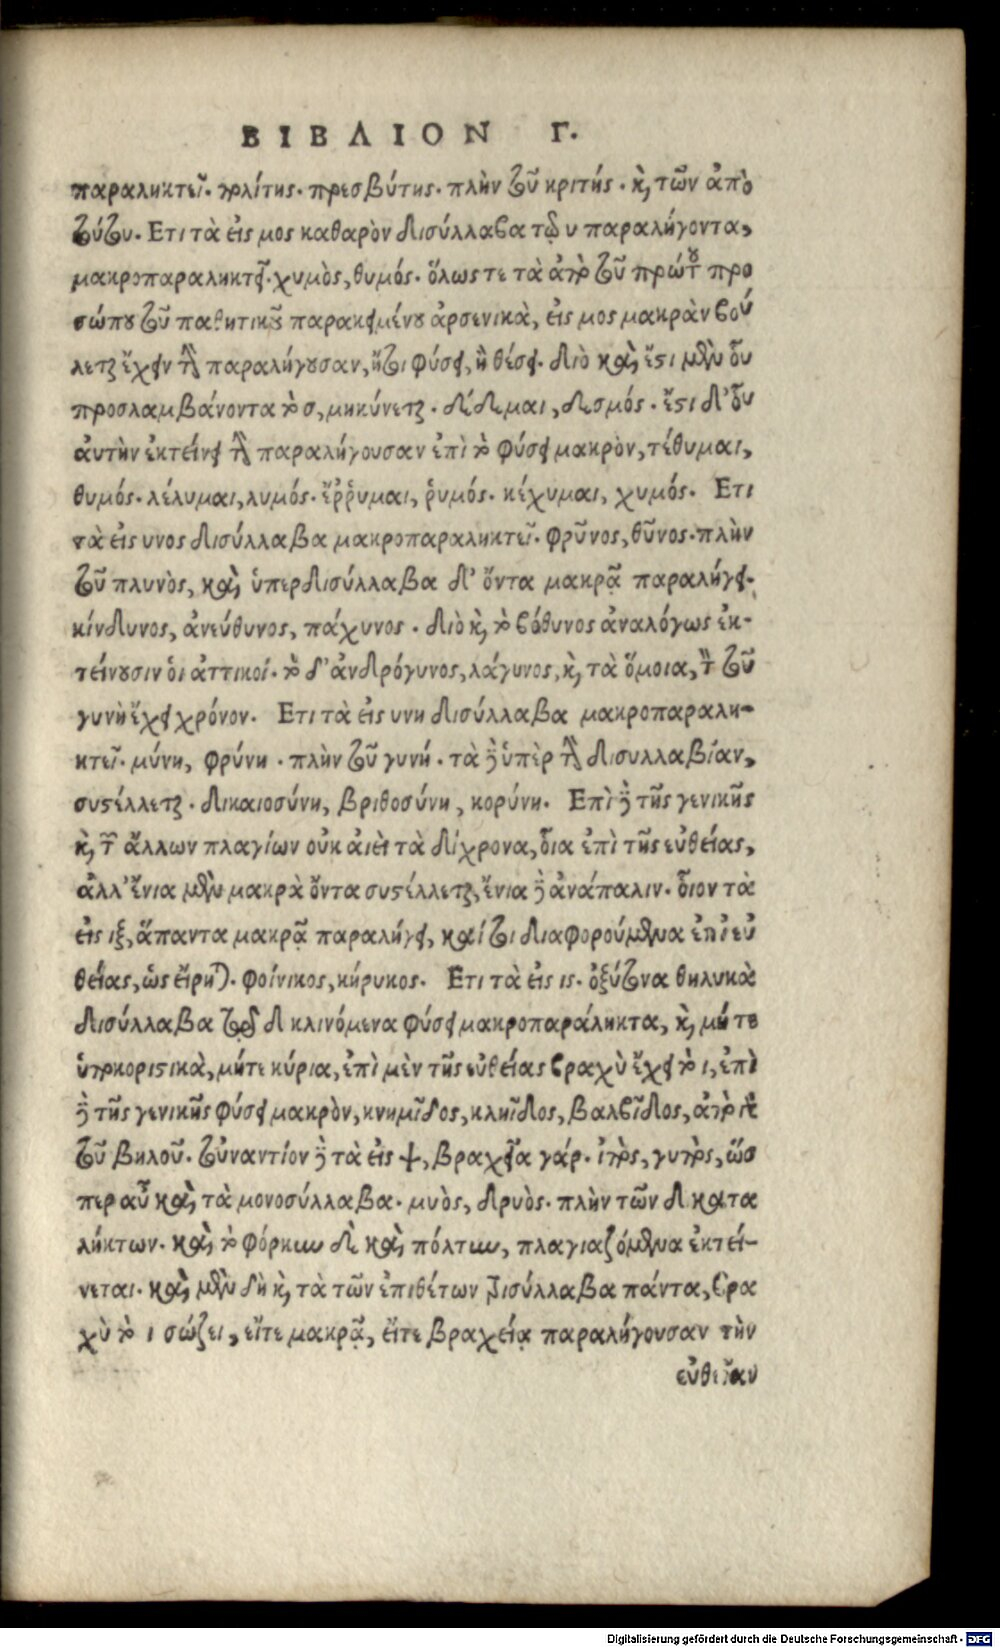 ΒΙΒΛΙΟΝ Γ.
παραληκτεῖ· πολίτης· πρεσβύτης· πλὴν τοῦ κριτής· καὶ τῶν ἀπὸ
τούτου. Ετι τὰ εἰς μος καθαρὸν δισύλλαβα τῷ υ παραλήγοντα,
μακροπαραληκτεῖ· χυμὸς, θυμός· ὅλως τε τὰ ἀπὸ τοῦ πρώτου προ
σώπου τοῦ παθητικοῦ παρακειμένου ἀρσενικὰ, εἰς μος μακρὰν βού
λεται ἔχειν τὴν παραλήγουσαν, ἤτοι φύσει, ἢ θέσει· διὸ καὶ, ἔστι μὲν οὗ
προσλαμβάνοντα τὸ σ, μηκύνεται· δέδεμαι, δεσμός· ἔστι δ' οὗ
αὐτὴν ἐκτείνει τὴν παραλήγουσαν ἐπὶ τὸ φύσει μακρὸν, τέθυμαι,
θυμός· λέλυμαι, λυμός· ἔῤῥυμαι, ῥυμός· κέχυμαι, χυμός. Ετι
τὰ εἰς υνος δισύλλαβα μακροπαραληκτεῖ· φρῦνος, θῦνος· πλὴν
τοῦ πλυνὸς, καὶ, ὑπερδισύλλαβα δ' ὄντα μακρᾷ παραλήγει·
κίνδυνος, ἀνεύθυνος, πάχυνος· διὸ καὶ, τὸ βόθυνος ἀναλόγως ἐκ-
τείνουσιν ὁι ἀττικοί· τὸ δ' ἀνδρόγυνος, λάγυνος, καὶ, τὰ ὅμοια, τὸν τοῦ
γυνὴ ἔχει χρόνον. Ετι τὰ εἰς υνη δισύλλαβα μακροπαραλη-
κτεῖ· μύνη, φρύνη· πλὴν τοῦ γυνή· τὰ δὲ ὑπὲρ τὴν δισυλλαβίαν,
συστέλλεται· δικαιοσύνη, βριθοσύνη, κορύνη. Επὶ δὲ τῆς γενικῆς
καὶ, τῶν ἄλλων πλαγίων οὐκ ἀιεὶ τὰ δίχρονα, οἷα ἐπὶ τῆς εὐθείας,
ἀλλ' ἔνια μὲν μακρὰ ὄντα συστέλλεται, ἔνια δὲ ἀνάπαλιν· οἷον τὰ
εἰς ιξ, ἅπαντα μακρᾷ παραλήγει, καί τοι διαφορούμενα ἐπ' εὐ
θείας, ὡς εἴρηται· φοίνικος, κήρυκος. Ετι τὰ εἰς ις· ὀξύτονα θηλυκὰ
δισύλλαβα διὰ τοῦ δ κλινόμενα φύσει μακροπαράληκτα, καὶ, μήτε
ὑποκοριστικὰ, μήτε κύρια, ἐπὶ μὲν τῆς εὐθείας βραχὺ ἔχει τὸ ι, ἐπὶ
δὲ τῆς γενικῆς φύσει μακρὸν, κνημῖδος, κληῖδος, βαλβῖδος, ἀπὸ
τοῦ βηλοῦ. τοὐναντίον δὲ τὰ εἰς ψ, βραχεῖα γάρ· ἰπὸς, γυπὸς, ὥσ
περ αὖ καὶ, τὰ μονοσύλλαβα· μυὸς, δρυὸς· πλὴν τῶν δ κατα
λήκτων. καὶ, τὸ φόρκυν δὲ καὶ, πόλτυν, πλαγιαζόμενα ἐκτεί-
νεται. καὶ, μὲν δὴ καὶ, τὰ τῶν ἐπιθέτων δισύλλαβα πάντα, βρα
χὺ τὸ ι σώζει, εἴτε μακρᾷ, εἴτε βραχείᾳ παραλήγουσαν τὴν
εὐθεῖαν
Digitalisierung gefördert durch die Deutsche Forschungsgemeinschaft - DFG